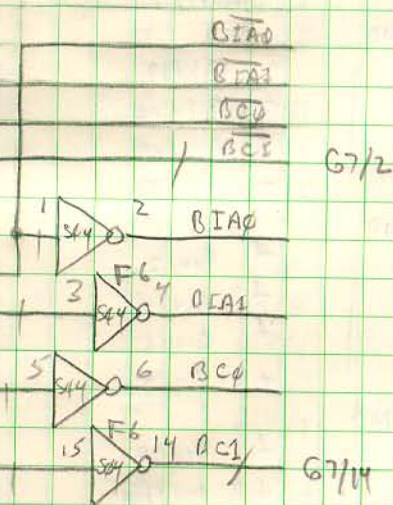 B̅I̅A̅0̅
B̅I̅A̅1̅
B̅C̅0̅
B̅C̅1̅ G7/2
1 S04 2 BIA0
F6
3 S04 4 BIA1
5 S04 6 BC0
F6
15 S04 14 BC1 G7/14